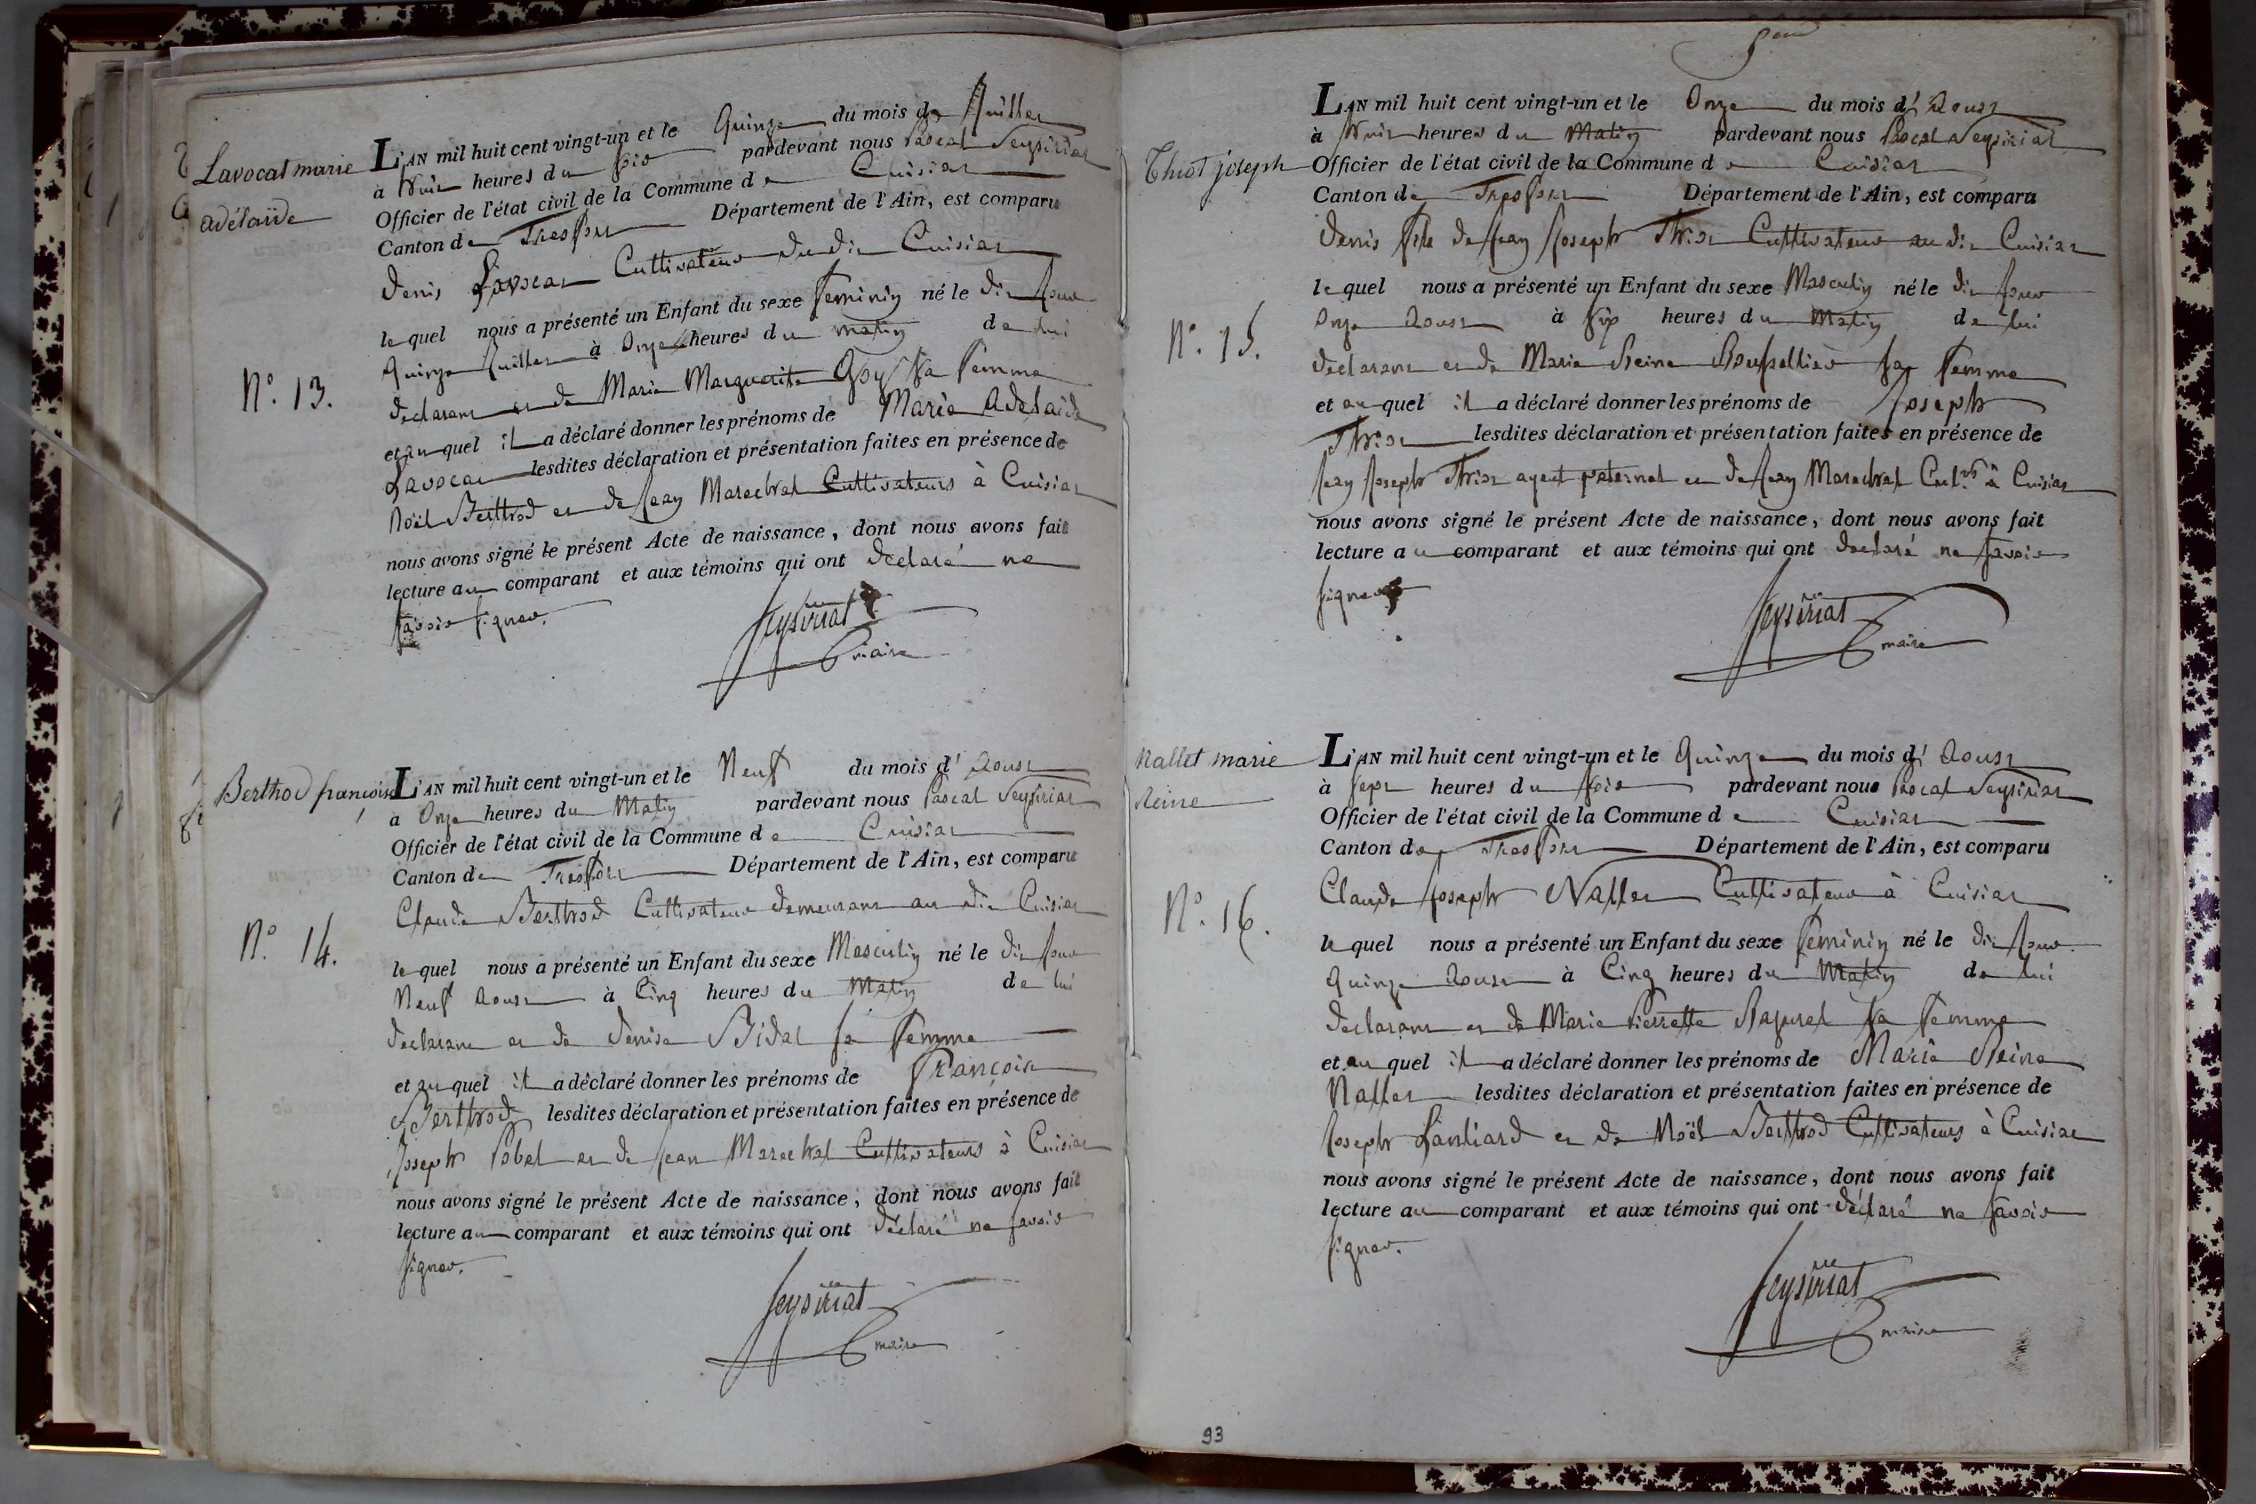 Lavocat marie
adélaïde
N.º 13.
L'AN mil huit cent vingt-un et le Quinze du mois de Juillet
à huit heures du soir pardevant nous Pascal Seysiriat
Officier de l'état civil de la Commune de Cuisiat
Canton de Treffort Département de l'Ain, est comparu
Denis Lavocat Cultivateur du dit Cuisiat
lequel nous a présenté un Enfant du sexe feminin né le dit jour
Quinze Juillet à Onze heures du matin de lui
déclarant et de Marie Marguerite Goy sa femme
et auquel il a déclaré donner les prénoms de Marie Adelaïde
Lavocat lesdites déclaration et présentation faites en présence de
Noël Berthod et de Jean Marechal Cultivateurs à Cuisiat
nous avons signé le présent Acte de naissance, dont nous avons fait
lecture au comparant et aux témoins qui ont déclaré ne
savoir signer.
Seysiriat
maire
Berthod françois
N.º 14.
L'AN mil huit cent vingt-un et le Neuf du mois d' Aoust
à Onze heures du Matin pardevant nous Pascal Seysiriat
Officier de l'état civil de la Commune de Cuisiat
Canton de Treffort Département de l'Ain, est comparu
Claude Berthod Cultivateur demeurant au dit Cuisiat
lequel nous a présenté un Enfant du sexe Masculin né le dit jour
Neuf Aoust à Cinq heures du Matin de lui
déclarant et de Denise Bidat sa femme
et auquel il a déclaré donner les prénoms de François
Berthod lesdites déclaration et présentation faites en présence de
Joseph Pobel et de Jean Marechal Cultivateurs à Cuisiat
nous avons signé le présent Acte de naissance, dont nous avons fait
lecture au comparant et aux témoins qui ont déclaré ne savoir
signer.
Seysiriat
maire
Thiot joseph
N.º 15.
L'AN mil huit cent vingt-un et le Onze du mois d' Aoust
à huit heures du Matin pardevant nous Pascal Seysiriat
Officier de l'état civil de la Commune de Cuisiat
Canton de Treffort Département de l'Ain, est comparu
Denis fils de Jean Joseph Thiot Cultivateur au dit Cuisiat
lequel nous a présenté un Enfant du sexe Masculin né le dit jour
Onze Aoust à six heures du Matin de lui
déclarant et de Marie Reine Roussellier sa femme
et auquel il a déclaré donner les prénoms de Joseph
Thiot lesdites déclaration et présentation faites en présence de
Jean Joseph Thiot ayeul paternel et de Jean Marechal Cult.rs à Cuisiat
nous avons signé le présent Acte de naissance, dont nous avons fait
lecture au comparant et aux témoins qui ont declaré ne savoir
signer
Seysiriat
maire
Nallet marie
Reine
N.º 16.
L'AN mil huit cent vingt-un et le Quinze du mois d' Aoust
à sept heures du soir pardevant nous Pascal Seysiriat
Officier de l'état civil de la Commune de Cuisiat
Canton de Treffort Département de l'Ain, est comparu
Claude Joseph Nallet Cultivateur à Cuisiat
lequel nous a présenté un Enfant du sexe feminin né le dit jour
Quinze Aoust à Cinq heures du Matin de lui
declarant et de Marie Pierrette Raquret sa femme
et auquel il a déclaré donner les prénoms de Marie Reine
Nallet lesdites déclaration et présentation faites en présence de
Joseph Lanliard et de Noël Berthod Cultivateurs à Cuisiat
nous avons signé le présent Acte de naissance, dont nous avons fait
lecture au comparant et aux témoins qui ont déclaré ne savoir
signer.
Seysiriat
maire
93